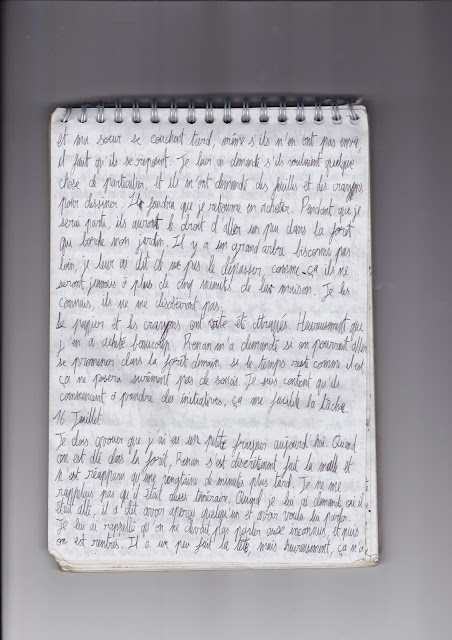 et ma soeur se couchent tard, même s'ils n'en ont pas envie
il faut qu'ils se reposent. Je leur ai demandé s'ils voulaient quelque
chose de particulier, et ils m'ont demandé des feuilles et des crayons
pour dessiner. Il faudra que je retourne en acheter. Pendant que je
serai parti, ils auront le droit d'aller un peu dans la forêt
qui borde mon jardin. Il y a un grand arbre biscornu pas
loin, je leur ai dit de ne pas le dépasser, comme ça ils ne
seront jamais à plus de cinq minutes de la maison. Je les
connais, ils ne me désobéiront pas.
Le papier et les crayons ont vite été attrapés. Heureusement que
j'en ai acheté beaucoup. Ronan m'a demandé si on pourrait aller
se promener dans la forêt demain, si le temps reste comme il est
ça ne posera sûrement pas de soucis. Je suis content qu'ils
commencent à prendre des initiatives, ça me facilite la tâche.
16 Juillet
Je dois avouer que j'ai eu une petite frayeur aujourd'hui. Quand
on est allé dans la forêt, Ronan s'est discrètement fait la malle et
n'est réapparu qu'une vingtaine de minutes plus tard. Je ne me
rappelais pas qu'il était aussi téméraire. Quand je lui ai demandé où il
était allé, il a dit avoir aperçu quelqu'un et avoir voulu lui parler.
Je lui ai rappelé qu'on ne devait pas parler aux inconnus, et puis
on est rentrés. Il a un peu fait la tête, mais heureusement, ça n'a